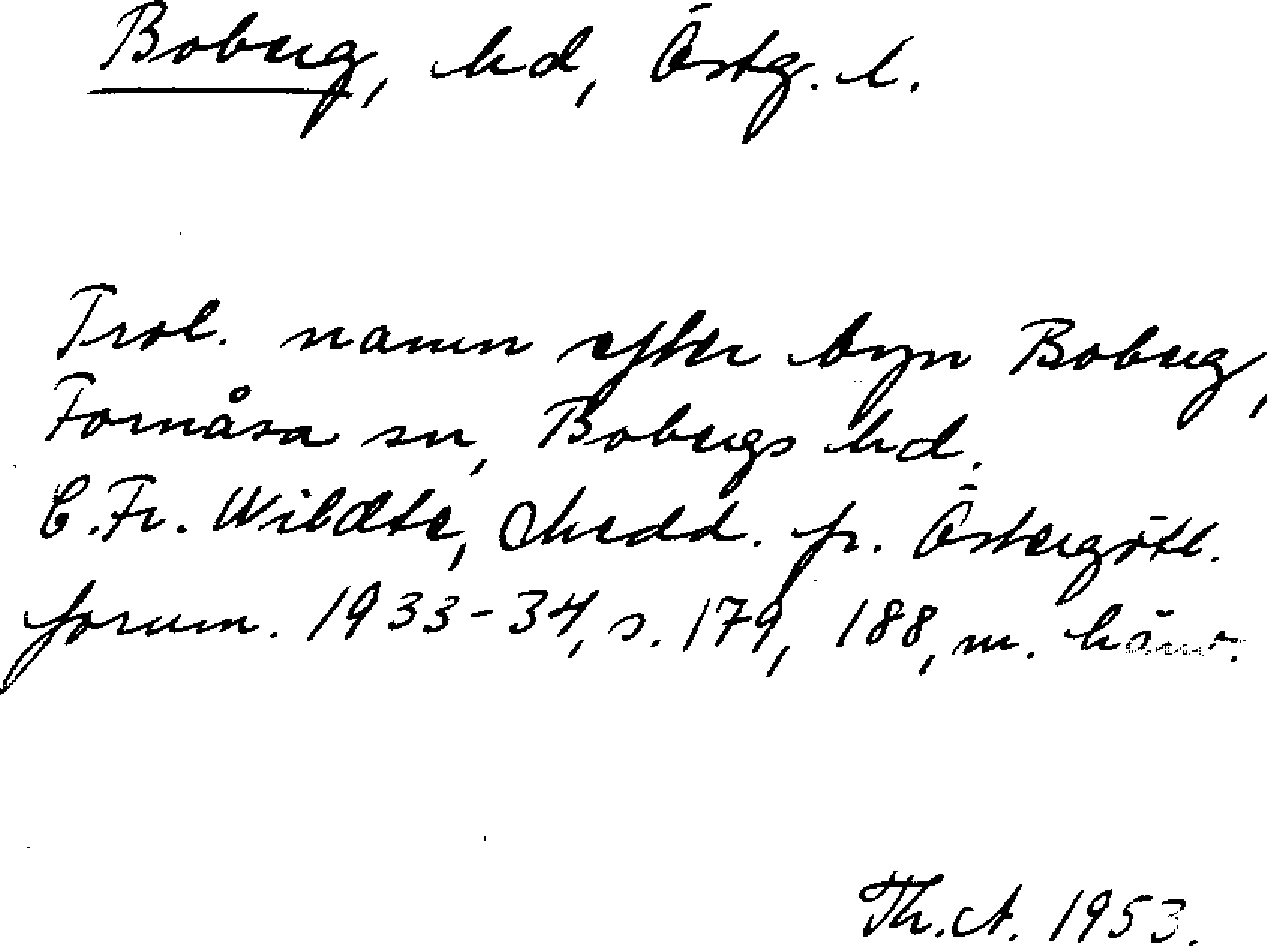 Boberg, hd, Östg. l.
Trol. namn efter byn Boberg,
Fornåsa sn, Bobergs hd.
C.Fr. Wildte, Medd. fr. Östergötl.
fornm. 1933-34, s. 179, 188, m. hänv.
Th.A. 1953.